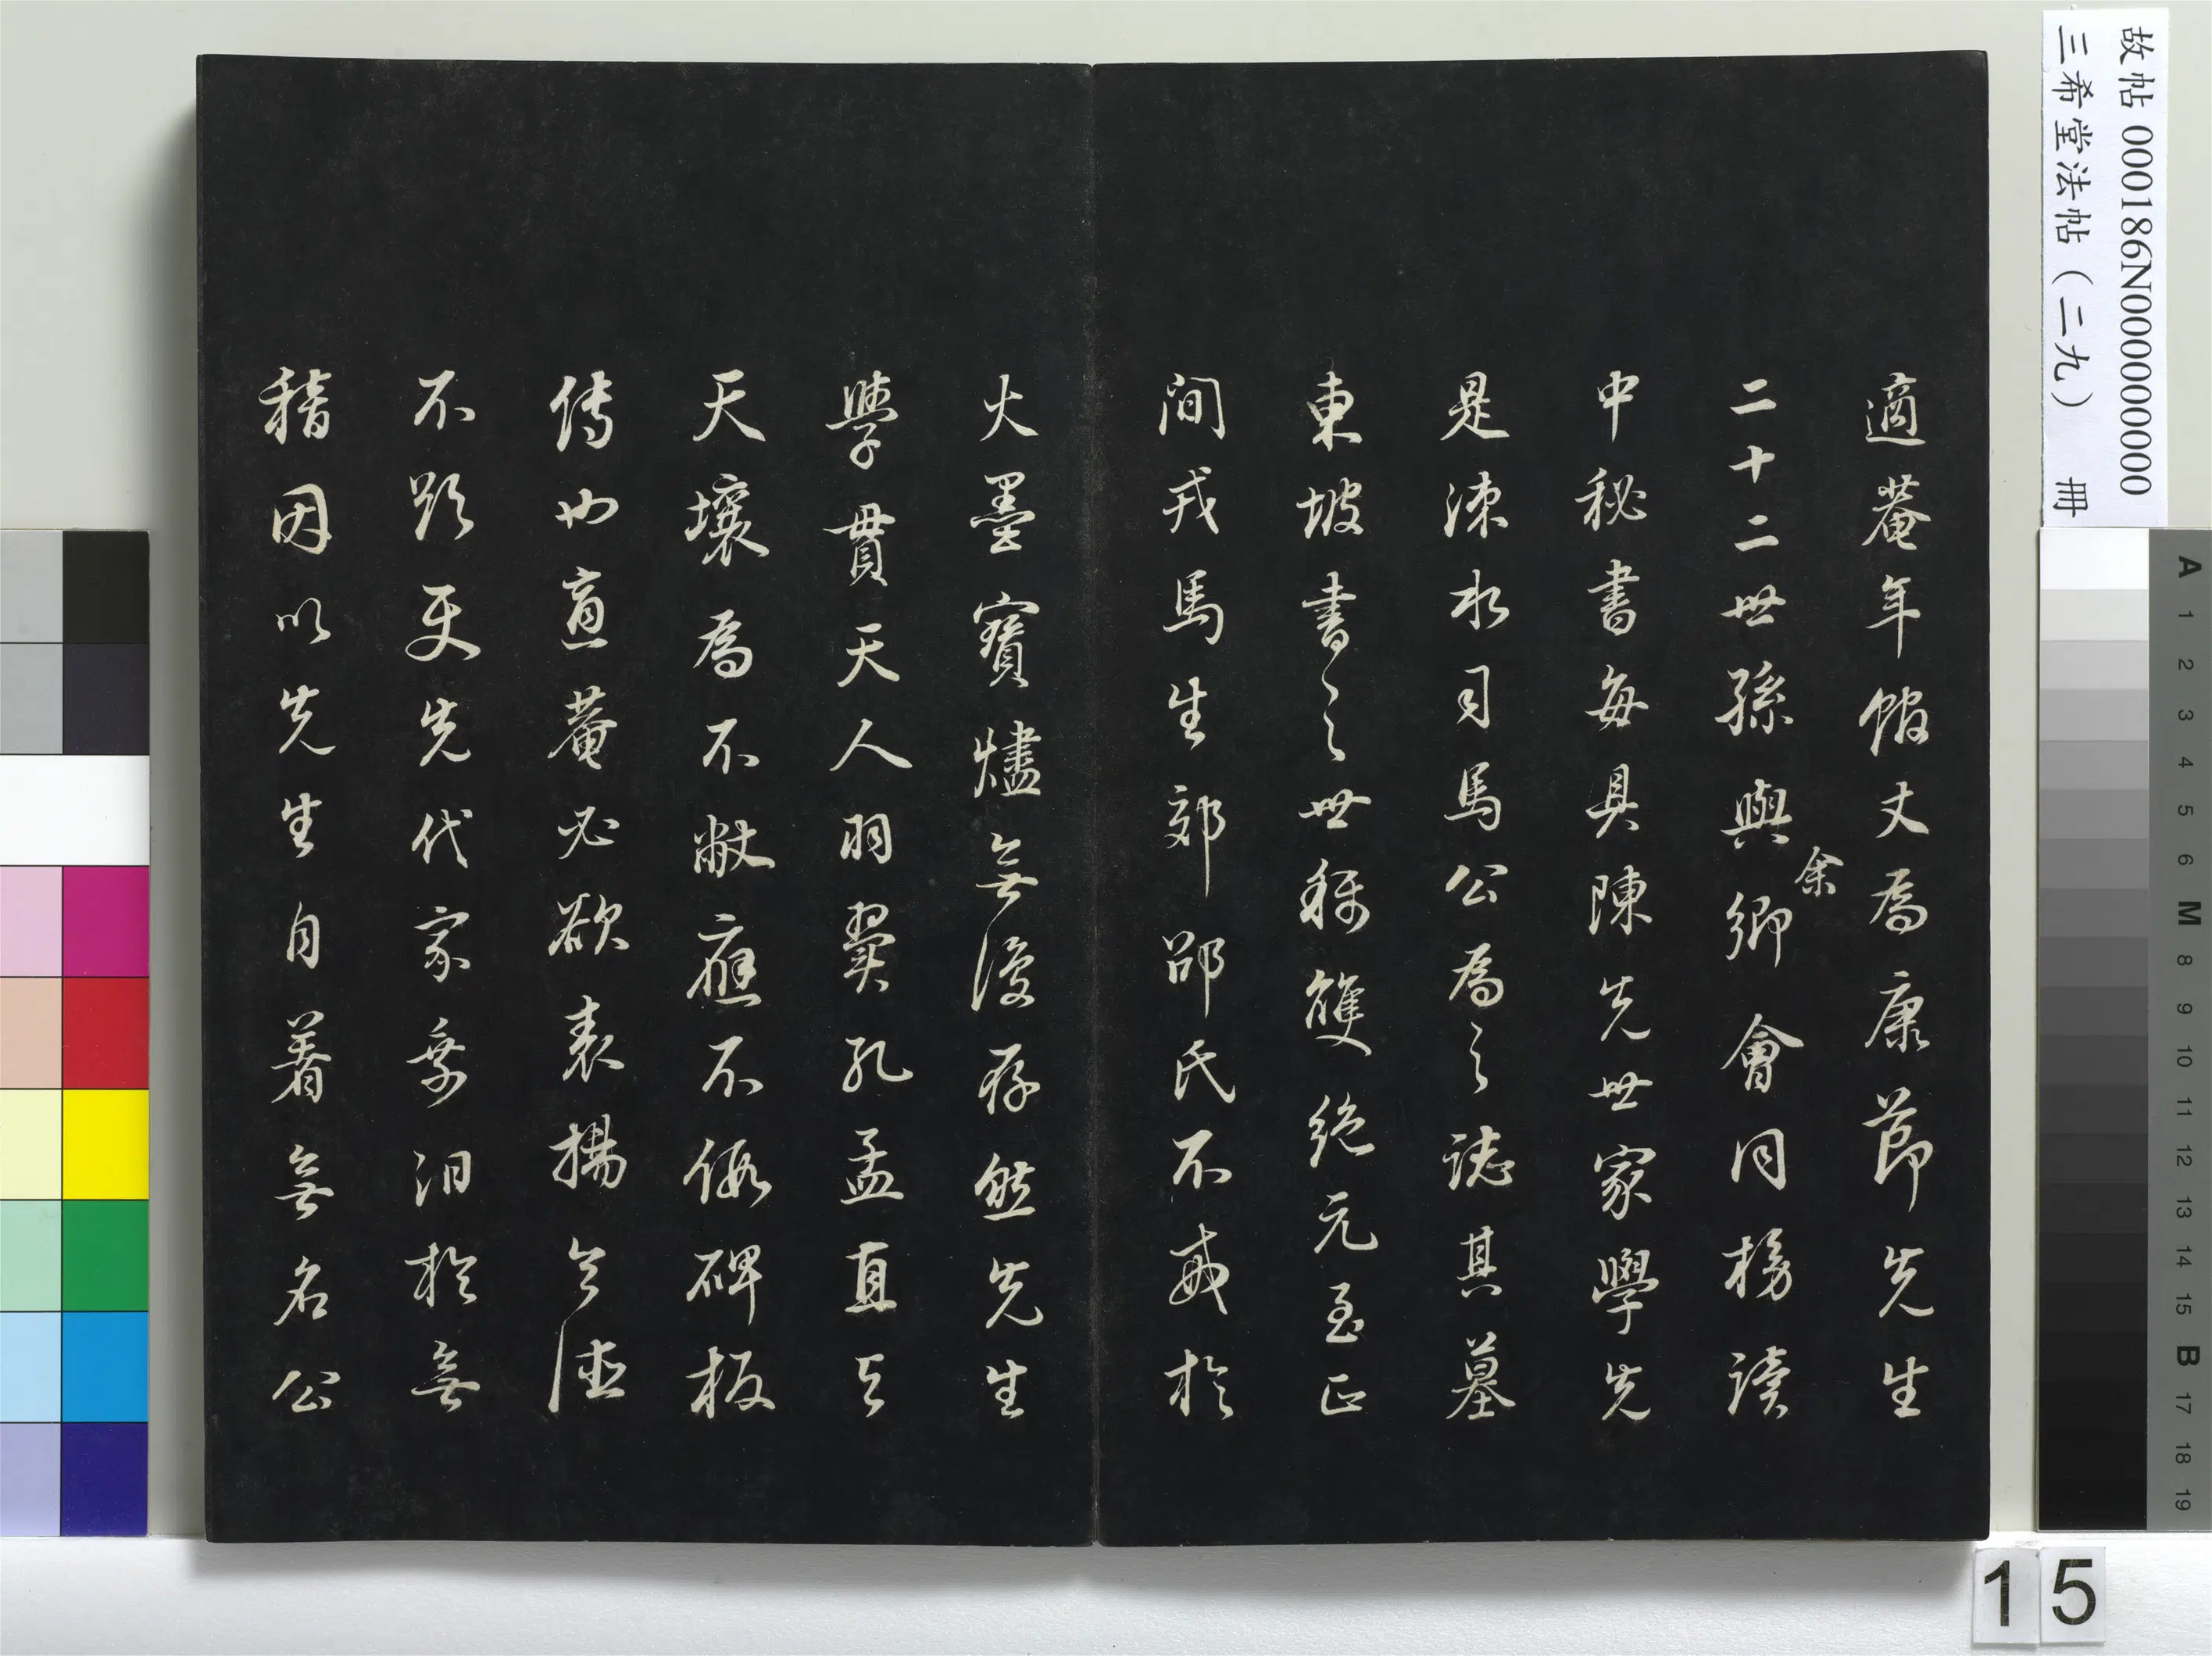 故帖 000186N000000000
三希堂法帖（二九） 冊
適菴年館丈為康節先生
二十二世孫與余卿會同榜讀
中秘書每具陳先世家學先
是涑水司馬公為之誌其墓
東坡書之世稱雙絕元至正
間戎馬生郊邵氏不戒於
火墨寶燼無復存然先生
學貫天人羽翼孔孟直與
天壤為不敝應不假碑板
傳也適菴必欲表揚令德
不更先代家乘汨於無
稽因以先生自著無名公
A 1 2 3 4 5 6 M 8 9 10 11 12 13 14 15 B 17 18 19
15